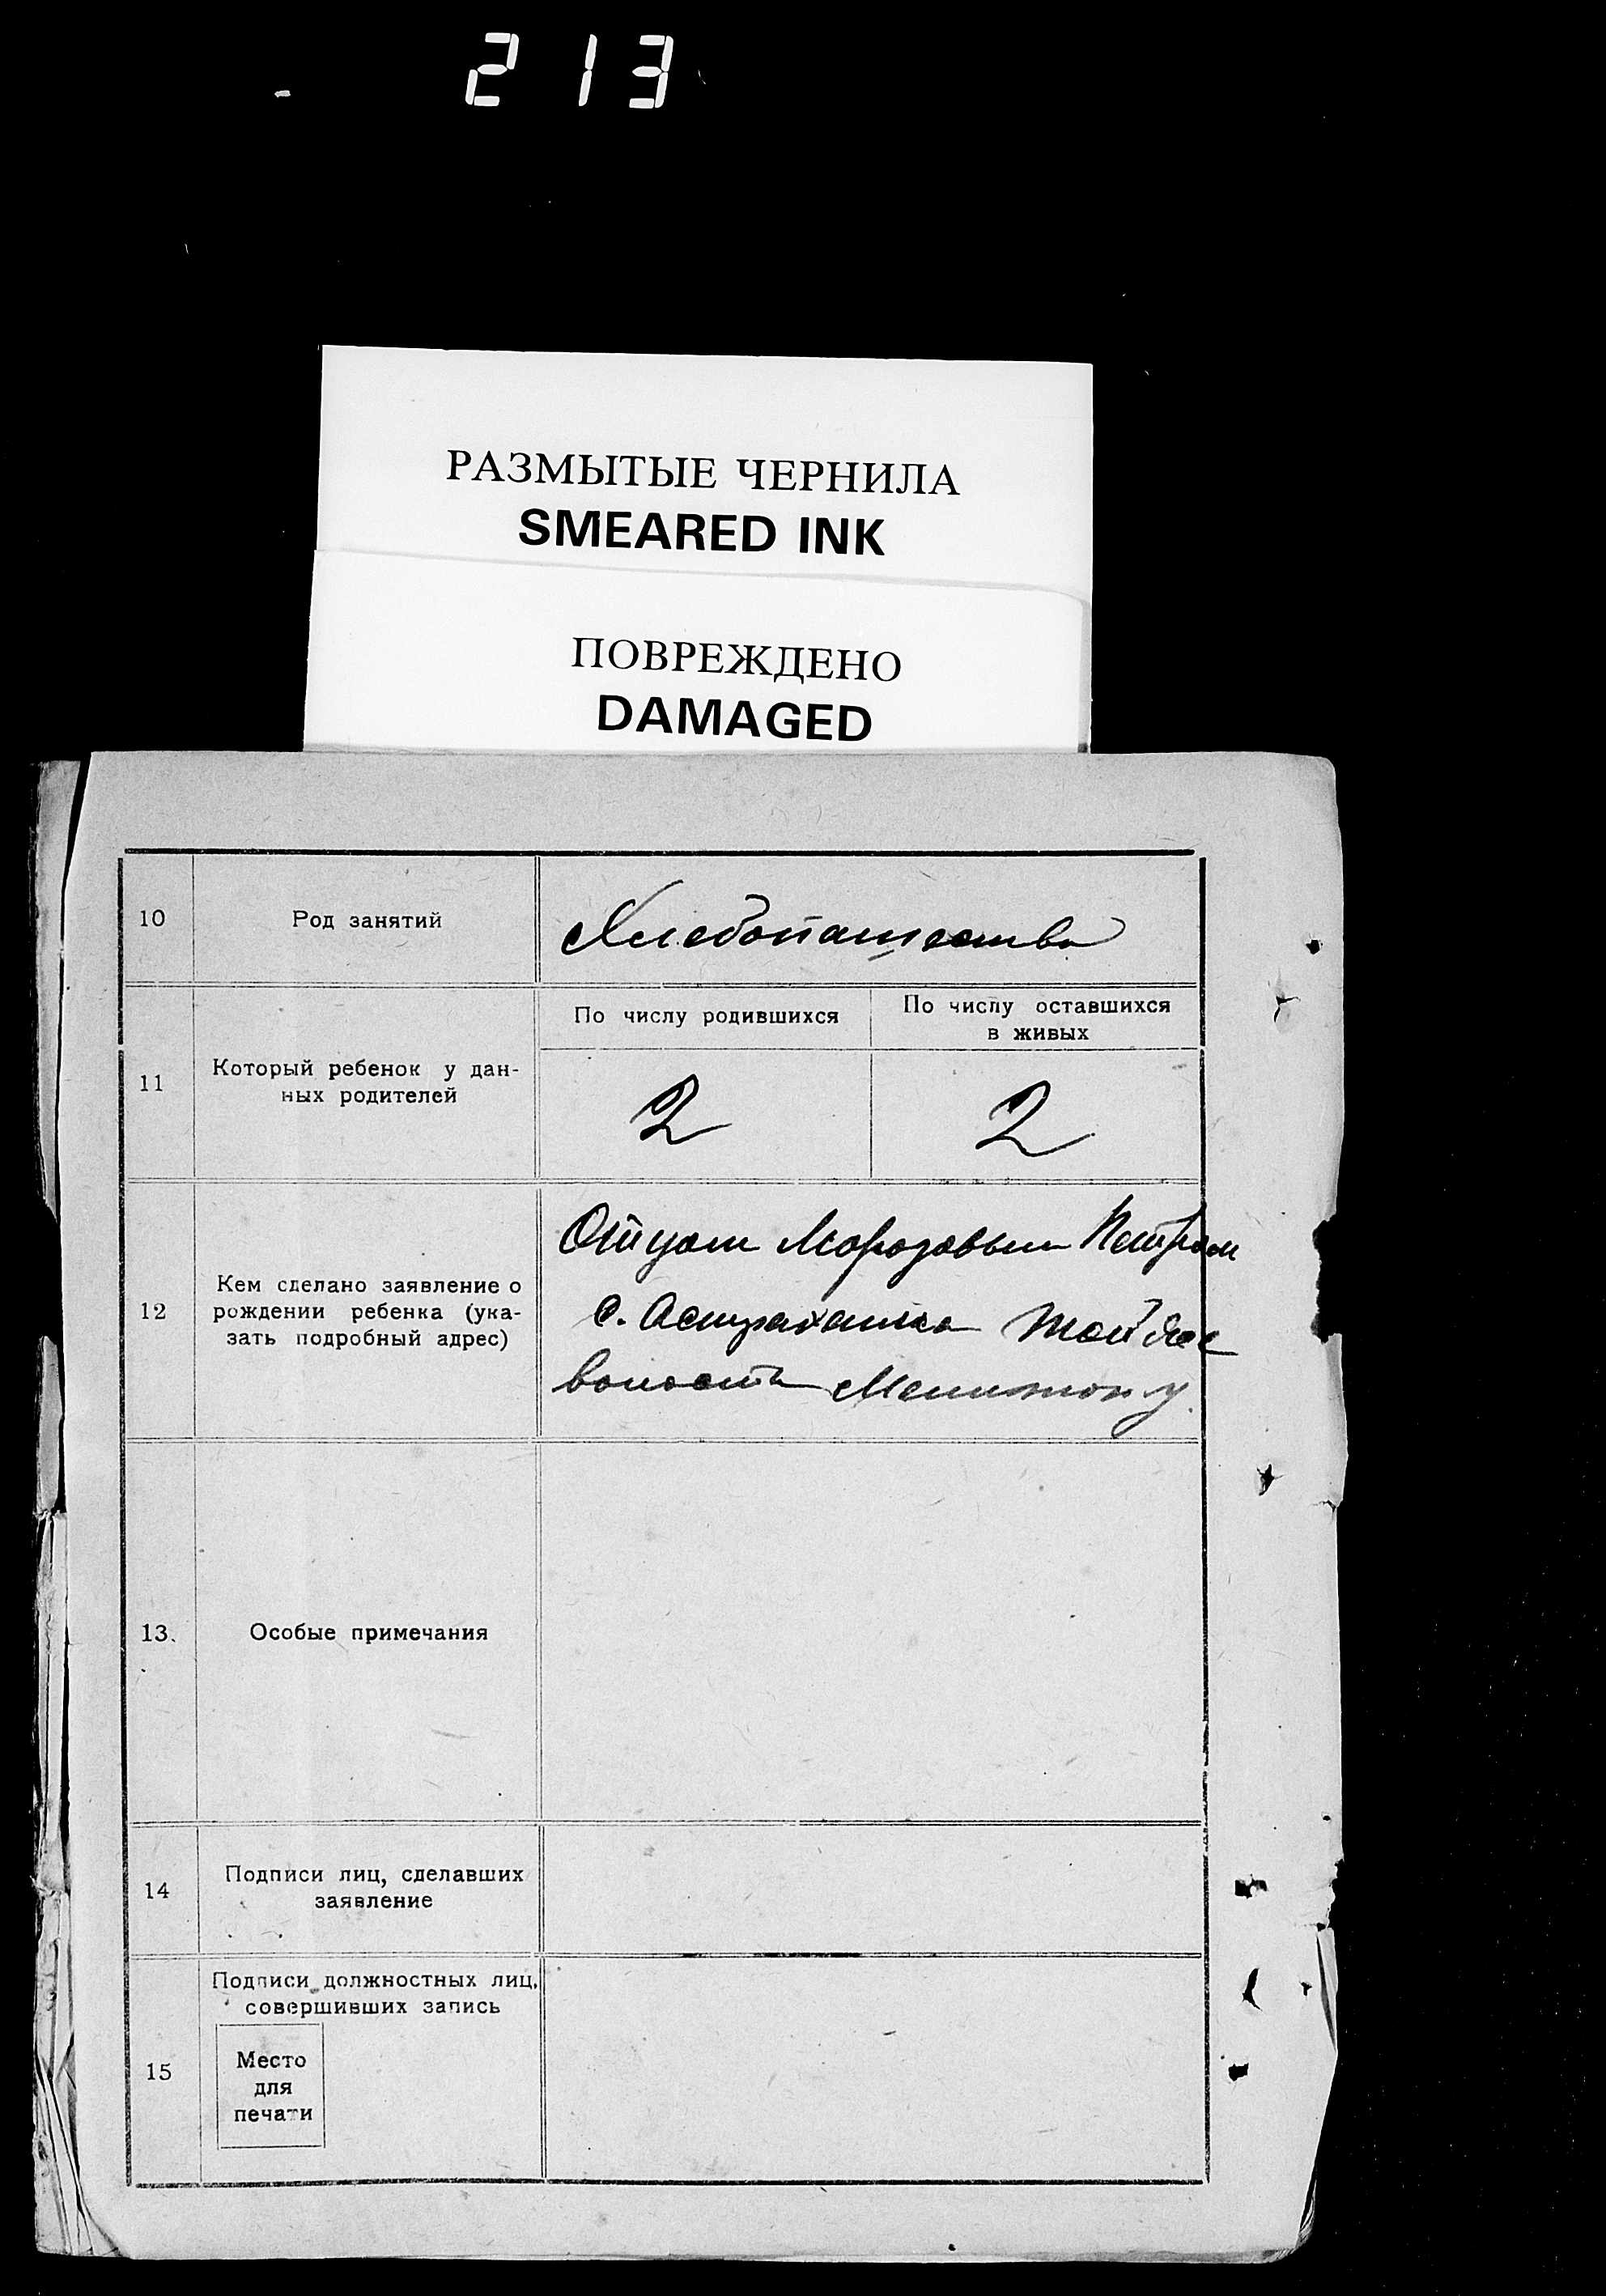 213
РАЗМЫТЫЕ ЧЕРНИЛА
SMEARED INK
ПОВРЕЖДЕНО
DAMAGED
10
Род занятий
Хлебопашество
11
Который ребенок у дан-
ных родителей
По числу родившихся
По числу оставшихся
в живых
2
2
12
Кем сделано заявление о
рождении ребенка (ука-
зать подробный адрес)
Отцом Морозовым Петром
с. Астраханка
волость
13.
Особые примечания
14
Подписи лиц, сделавших
заявление
15
Подписи должностных лиц,
совершивших запись
Место
для
печати